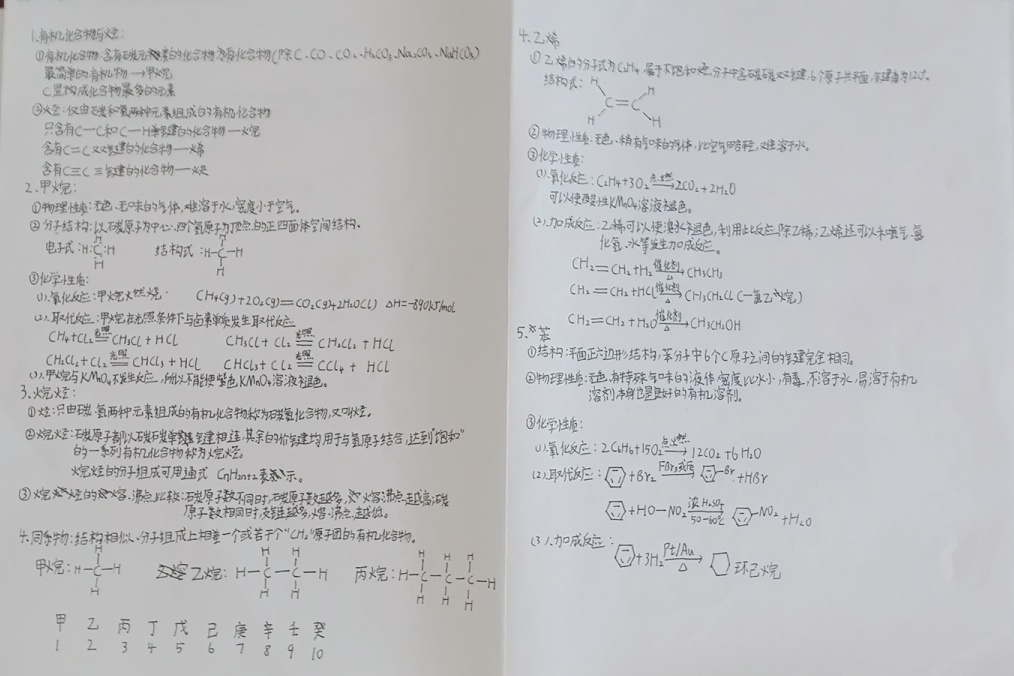 1.有机化合物与烃:
①有机化合物:含有碳元素的化合物为有化合物(除C、CO、CO₂、H₂CO₃、Na₂CO₃、NaHCO₃)
最简单的有机物→甲烷
C是构成化合物最多的元素
②烃:仅由碳和氢两种元素组成的有机化合物
只含有C—C和C—H单键的化合物—烷
含有C=C双键的化合物—烯
含有C≡C三键的化合物—炔
2、甲烷:
①物理性质:无色、无味的气体,难溶于水,密度小于空气。
②分子结构:以碳原子为中心、四个氢原子为顶点的正四面体空间结构。
电子式: 结构式:
H H
H C H H—C—H
H H
③化学性质:
(1).氧化反应:甲烷燃烧. CH₄(g)+2O₂(g)=CO₂(g)+2H₂O(l) ΔH=-890kJ/mol
(2).取代反应:甲烷在光照条件下与卤素单质发生取代反应
CH₄+Cl₂ 光照 CH₃Cl+HCl CH₃Cl+Cl₂ 光照 CH₂Cl₂+HCl
CH₂Cl₂+Cl₂ 光照 CHCl₃+HCl CHCl₃+Cl₂ 光照 CCl₄+HCl
(3).甲烷与KMnO₄不发生反应,所以不能使紫色KMnO₄溶液褪色。
3、烷烃:
①烃:只由碳.氢两种元素组成的有机化合物称为碳氢化合物,又叫烃。
②烷烃:碳原子都以碳碳单键相连,其余的价键均用于与氢原子结合,达到"饱和"
的一系列有机化合物称为烷烃。
烷烃的分子组成可用通式 CnH2n+2表示。
③烷烃的熔、沸点比较:碳原子数不同时,碳原子数越多,熔沸点越高;碳
原子数相同时,支链越多,熔、沸点越低。
4.同系物:结构相似、分子组成上相差一个或若干个"CH₂"原子团的有机化合物。
甲烷: 乙烷: 丙烷:
H H H H H H
H—C—H H—C—C—H H—C—C—C—H
H H H H H H
甲 乙 丙 丁 戊 己 庚 辛 壬 癸
1 2 3 4 5 6 7 8 9 10
4.乙烯
①乙烯的分子式为C₂H₄.属于不饱和烃,分子中含碳碳双键,6个原子共平面,键角为120°。
结构式:
H H
C=C
H H
②物理性质:无色、稍有气味的气体,比空气略轻,难溶于水。
③化学性质:
(1).氧化反应:C₂H₄+3O₂ 点燃→2CO₂+2H₂O
可以使酸性KMnO₄溶液褪色。
(2).加成反应:乙烯可以使溴水褪色,利用此反应除乙烯;乙烯还可以和氢气.氯
化氢、水等发生加成反应。
CH₂=CH₂+H₂ 催化剂 △→CH₃CH₃
CH₂=CH₂+HCl 催化剂 △→CH₃CH₂Cl(一氯乙烷)
CH₂=CH₂+H₂O 催化剂 △→CH₃CH₂OH
5、苯
①结构:平面正六边形结构,苯分子中6个C原子之间的键完全相同。
②物理性质:无色,有特殊气味的液体,密度比水小,有毒,不溶于水,易溶于有机
溶剂本身也是良好的有机溶剂。
③化学性质:
(1).氧化反应:2C₆H₆+15O₂ 点燃→12CO₂+6H₂O
(2).取代反应: +Br₂ FBr₃或Fe→ —Br+HBr
+HO—NO₂ 浓H₂SO₄ 50-60℃→ —NO₂+H₂O
(3).加成反应: +3H₂ Pt/Au △→ 环己烷